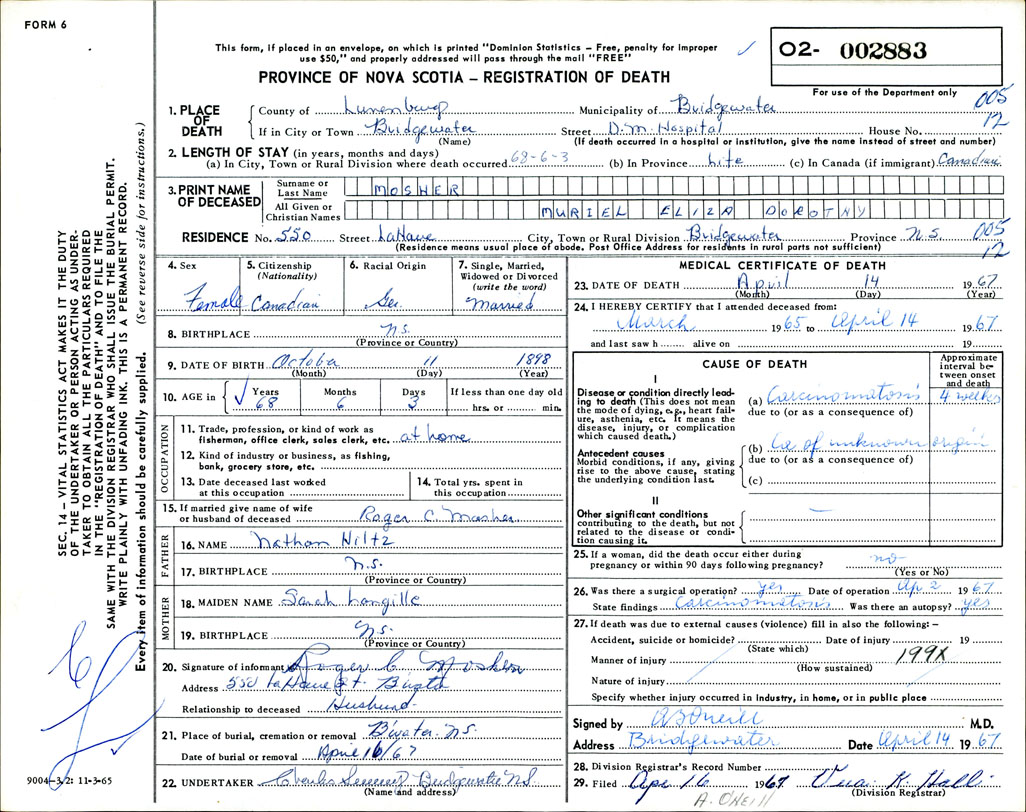 FORM 6
This form, if placed in an envelope, on which is printed "Dominion Statistics – Free, penalty for improper
use $50," and properly addressed will pass through the mail "FREE"
PROVINCE OF NOVA SCOTIA – REGISTRATION OF DEATH
02- 002883
For use of the Department only
005
12
1. PLACE OF DEATH
County of Lunenburg Municipality of Bridgewater
If in City or Town Bridgewater Street D.M. Hospital House No.
(Name) (If death occurred in a hospital or institution, give the name instead of street and number)
2. LENGTH OF STAY (in years, months and days)
(a) In City, Town or Rural Division where death occurred 68-6-3 (b) In Province Life (c) In Canada (if immigrant) Canadian
3. PRINT NAME OF DECEASED
Surname or Last Name MOSHER
All Given or Christian Names MURIEL ELIZA DOROTHY
RESIDENCE No. 550 Street LaHave City, Town or Rural Division Bridgewater Province N.S.
005
12
(Residence means usual place of abode. Post Office Address for residents in rural parts not sufficient)
4. Sex
Female
5. Citizenship
(Nationality)
Canadian
6. Racial Origin
Ger.
7. Single, Married,
Widowed or Divorced
(write the word)
Married
8. BIRTHPLACE N.S.
(Province or Country)
9. DATE OF BIRTH October 11 1898
(Month) (Day) (Year)
10. AGE in Years 68 Months 6 Days 3 If less than one day old
hrs. or min.
OCCUPATION
11. Trade, profession, or kind of work as
fisherman, office clerk, sales clerk, etc. at home
12. Kind of industry or business, as fishing,
bank, grocery store, etc.
13. Date deceased last worked
at this occupation
14. Total yrs. spent in
this occupation
15. If married give name of wife
or husband of deceased Roger C. Mosher
FATHER
16. NAME Nathan Hiltz
17. BIRTHPLACE N.S.
(Province or Country)
MOTHER
18. MAIDEN NAME Sarah Longille
19. BIRTHPLACE N.S.
(Province or Country)
20. Signature of informant Roger C. Mosher
Address 550 LaHave St.
Relationship to deceased Husband
21. Place of burial, cremation or removal B'water N.S.
Date of burial or removal April 16/67
22. UNDERTAKER Charles Bridgewater N.S.
(Name and address)
MEDICAL CERTIFICATE OF DEATH
23. DATE OF DEATH April 14 1967
(Month) (Day) (Year)
24. I HEREBY CERTIFY that I attended deceased from:
March 1965 to April 14 1967
and last saw h alive on 19
CAUSE OF DEATH
Approximate
interval be-
tween onset
and death
I
Disease or condition directly lead-
ing to death (This does not mean
the mode of dying, e.g., heart fail-
ure, asthenia, etc. It means the
disease, injury, or complication
which caused death.)
(a) Carcinomatosis 4 weeks
due to (or as a consequence of)
Antecedent causes
Morbid conditions, if any, giving
rise to the above cause, stating
the underlying condition last.
(b) Ca of unknown origin
due to (or as a consequence of)
(c)
II
Other significant conditions
contributing to the death, but not
related to the disease or condi-
tion causing it.
25. If a woman, did the death occur either during
pregnancy or within 90 days following pregnancy? no
(Yes or No)
26. Was there a surgical operation? yes Date of operation Ap 2 1967
State findings Carcinomatosis Was there an autopsy? yes
27. If death was due to external causes (violence) fill in also the following: –
Accident, suicide or homicide? Date of injury 19
(State which)
Manner of injury 199X
(How sustained)
Nature of injury
Specify whether injury occurred in industry, in home, or in public place
Signed by A O'Neill M.D.
Address Bridgewater Date April 14 1967
28. Division Registrar's Record Number
29. Filed Apr 16 1967
(Division Registrar)
A. O'NEILL
SEC. 14 – VITAL STATISTICS ACT MAKES IT THE DUTY
OF THE UNDERTAKER OR PERSON ACTING AS UNDER-
TAKER TO OBTAIN ALL THE PARTICULARS REQUIRED
IN THE "REGISTRATION OF DEATH" AND TO FILE THE
SAME WITH THE DIVISION REGISTRAR WHO SHALL ISSUE THE BURIAL PERMIT.
WRITE PLAINLY WITH UNFADING INK. THIS IS A PERMANENT RECORD.
Every item of information should be carefully supplied. (See reverse side for instructions.)
9004-3/2: 11-3-65